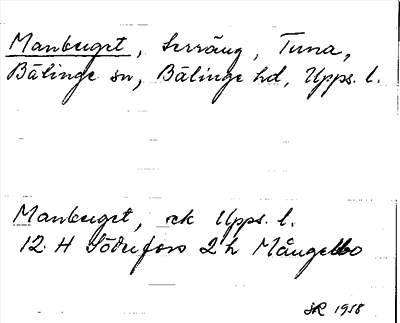 Manberget, Serräng, Tuna,
Bälinge sn, Bälinge hd, Upps. l.
Manberget, rek Upps. l.
12 H Söderfors 2 h Mångelbo
SR 1958